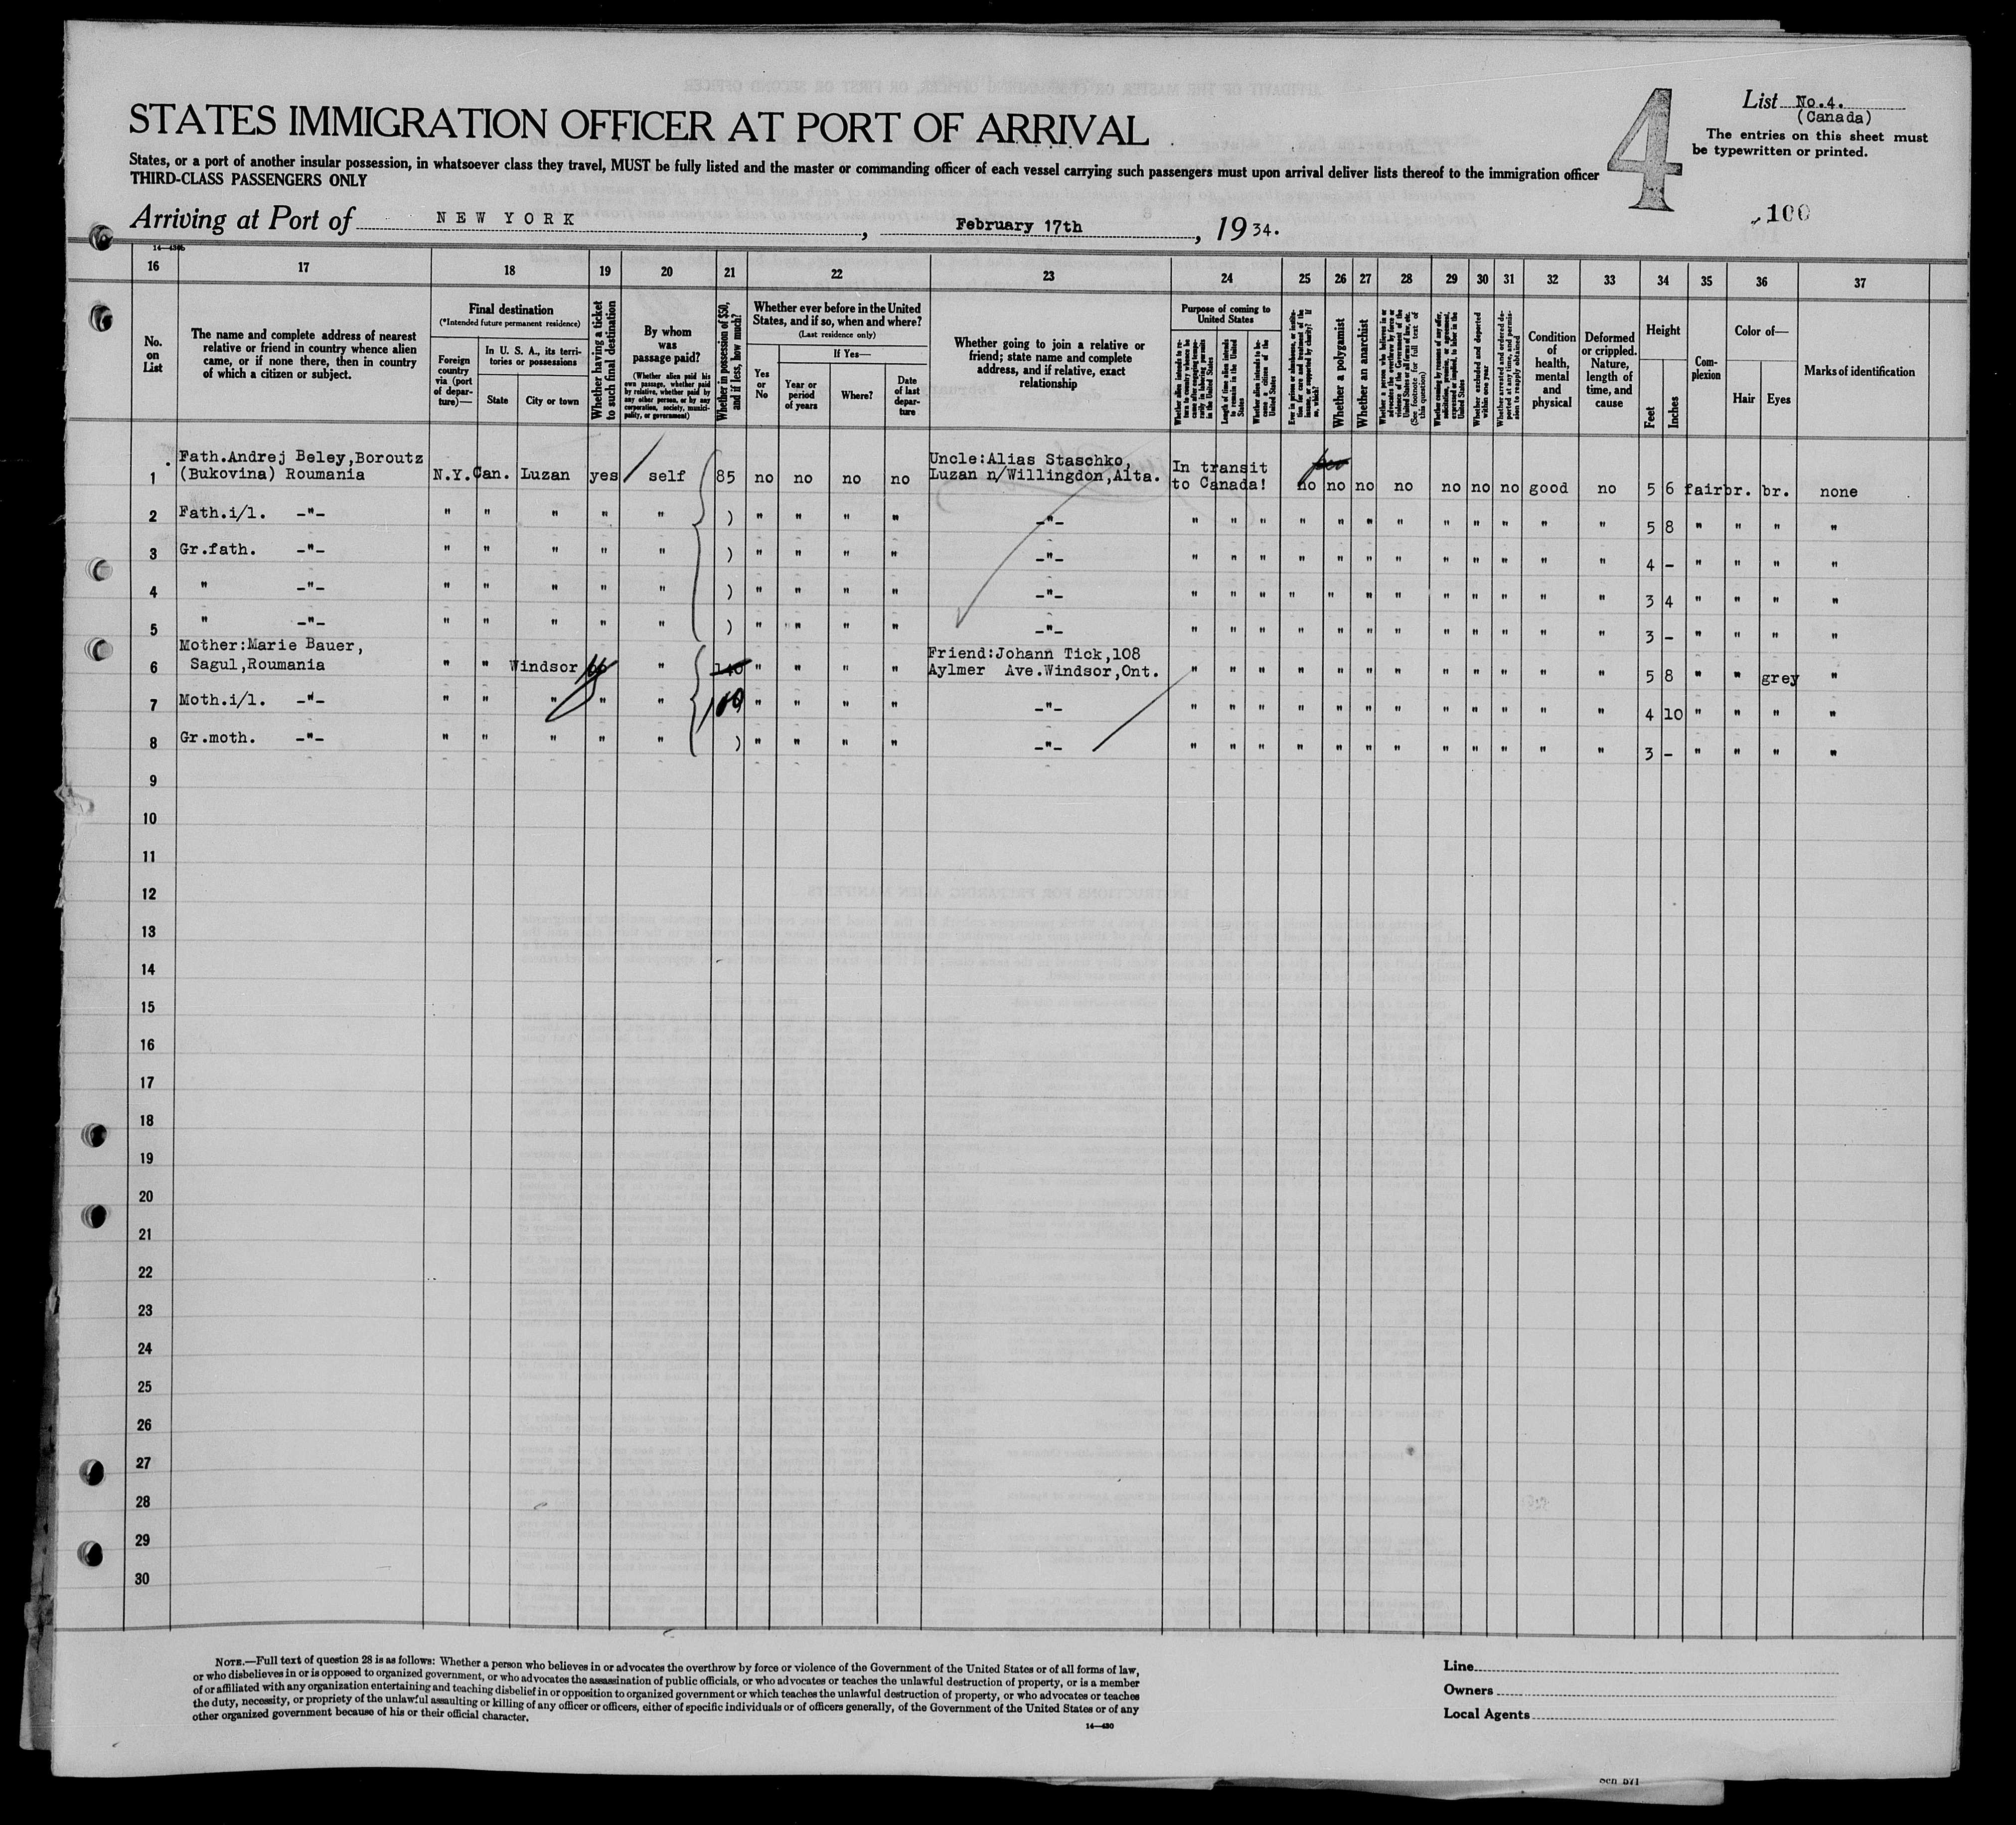 STATES IMMIGRATION OFFICER AT PORT OF ARRIVAL
4
List No.4.
(Canada)
The entries on this sheet must
be typewritten or printed.
States, or a port of another insular possession, in whatsoever class they travel, MUST be fully listed and the master or commanding officer of each vessel carrying such passengers must upon arrival deliver lists thereof to the immigration officer
THIRD-CLASS PASSENGERS ONLY
100
Arriving at Port of NEW YORK, February 17th, 1934.
16 17 18 19 20 21 22 23 24 25 26 27 28 29 30 31 32 33 34 35 36 37
No. on List
The name and complete address of nearest relative or friend in country whence alien came, or if none there, then in country of which a citizen or subject.
Final destination
(*Intended future permanent residence)
Foreign country via (port of departure)—
In U. S. A., its territories or possessions
State
City or town
Whether having a ticket to such final destination
By whom was passage paid?
(Whether alien paid his own passage, whether paid by relative, whether paid by any other person, or by any corporation, society, municipality, or government)
Whether in possession of $50, and if less, how much?
Whether ever before in the United States, and if so, when and where?
(Last residence only)
Yes or No
If Yes—
Year or period of years
Where?
Date of last departure
Whether going to join a relative or friend; state name and complete address, and if relative, exact relationship
Purpose of coming to United States
Length of time alien intends to remain in the United States
Whether alien intends to become a citizen of the United States
Whether a polygamist
Whether an anarchist
Condition of health, mental and physical
Deformed or crippled. Nature, length of time, and cause
Height
Feet
Inches
Complexion
Color of—
Hair
Eyes
Marks of identification
1 Fath.Andrej Beley,Boroutz (Bukovina) Roumania N.Y. Can. Luzan yes self 85 no no no no Uncle:Alias Staschko, Luzan n/Willingdon,Alta. In transit to Canada! no no no no no no no good no 5 6 fair br. br. none
2 Fath.i/l. -"- " " " " " ) " " " " -"- " " " " " " " " " " " " 5 8 " " " "
3 Gr.fath. -"- " " " " " ) " " " " -"- " " " " " " " " " " " " 4 - " " " "
4 " -"- " " " " " ) " " " " -"- " " " " " " " " " " " " 3 4 " " " "
5 " -"- " " " " " ) " " " " -"- " " " " " " " " " " " " 3 - " " " "
6 Mother:Marie Bauer, Sagul,Roumania " " Windsor " 140 " " " " Friend:Johann Tick,108 Aylmer Ave.Windsor,Ont. " " " " " " " " " " " " 5 8 " " grey "
7 Moth.i/l. -"- " " " " " " " " " -"- " " " " " " " " " " " " 4 10 " " " "
8 Gr.moth. -"- " " " " " ) " " " " -"- " " " " " " " " " " " " 3 - " " " "
9
10
11
12
13
14
15
16
17
18
19
20
21
22
23
24
25
26
27
28
29
30
NOTE.—Full text of question 28 is as follows: Whether a person who believes in or advocates the overthrow by force or violence of the Government of the United States or of all forms of law,
or who disbelieves in or is opposed to organized government, or who advocates the assassination of public officials, or who advocates or teaches the unlawful destruction of property, or is a member
of or affiliated with any organization entertaining and teaching disbelief in or opposition to organized government or which teaches the unlawful destruction of property, or who advocates or teaches
the duty, necessity, or propriety of the unlawful assaulting or killing of any officer or officers, either of specific individuals or of officers generally, of the Government of the United States or of any
other organized government because of his or their official character.
14—430
Line
Owners
Local Agents